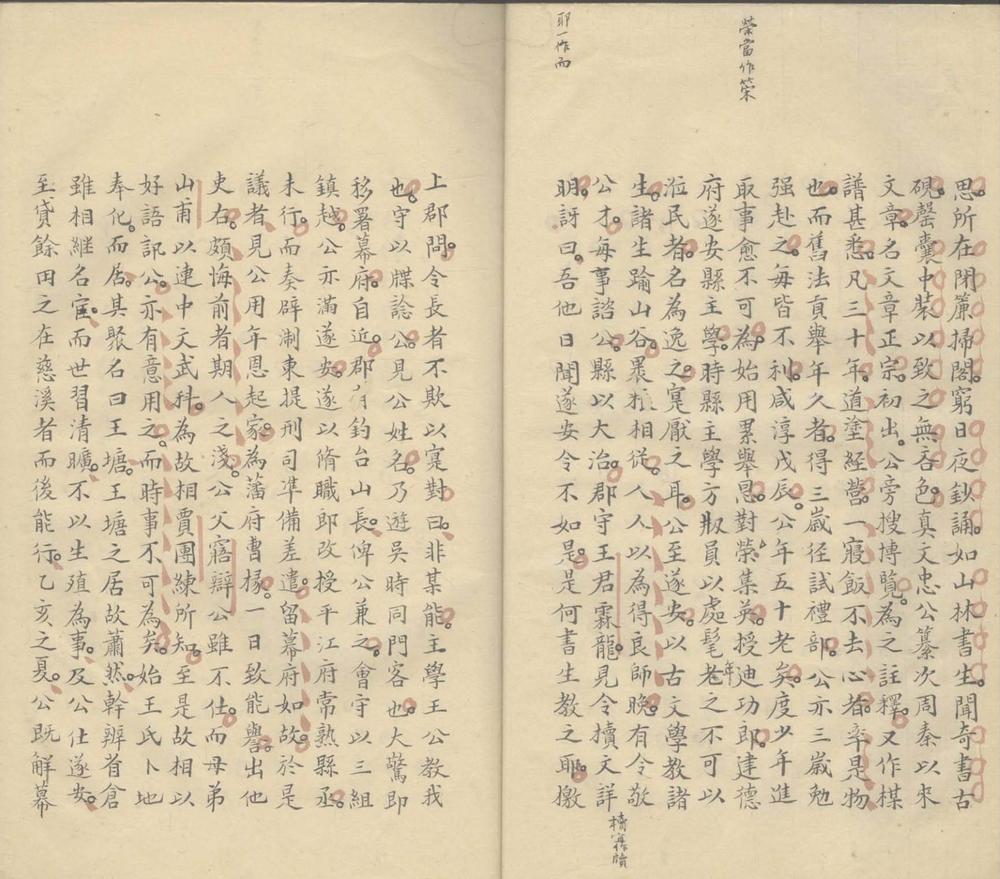 榮當作策
耶一作而
思所在閉簾掃閣窮日夜鈔誦如山林書生聞奇書古
硯罄囊中裝以致之無吝色真文忠公纂次周秦以來
文章名文章正宗初出公旁搜博覽為之註釋又作棋
譜甚悉凡三十年道塗經營一寢飯不去心者率是物
也而舊法貢舉年久者得三歲径試禮部公亦三歲勉
强赴之每皆不利咸淳戊辰公年五十老矣度少年進
取事愈不可為始用累舉恩對榮集英授迪功郎建德
府遂安縣主學時縣主學方版員以處髦老年之不可以
涖民者名為逸之寔厭之耳公至遂安以古文學教諸
生諸生踰山谷褁粮相從人人以為得良師晚有令敬
公才每事諮公縣以大治郡守王君霖龍見令擯文詳
明訝曰吾他日聞遂安令不如是是何書生教之耶檄
擯寫牘
上郡問令長者不欺以寔對曰非某能主學王公教我
也守以牒諗公見公姓名乃遊吳時同門客也大驚即
移署幕府自近郡有釣台山長俾公兼之會守以三組
鎮越公亦滿遂安遂以脩職郎改授平江府常熟縣丞
未行而奏辟淛東提刑司凖備差遣留幕府如故於是
議者見公用年恩起家為藩府曹掾一日致能譽出他
吏右頗悔前者期人之淺公父寤辯公雖不仕而母弟
山甫以連中文武科為故相賈團練所知至是故相以
好語訊公亦有意用之而時事不可為矣始王氏卜地
奉化而居其聚名曰王塘王塘之居故蕭然幹辨首倉
雖相継名宦而世習清曠不以生殖為事及公仕遂安
至貸餘田之在慈溪者而後能行乙亥之夏公既解幕